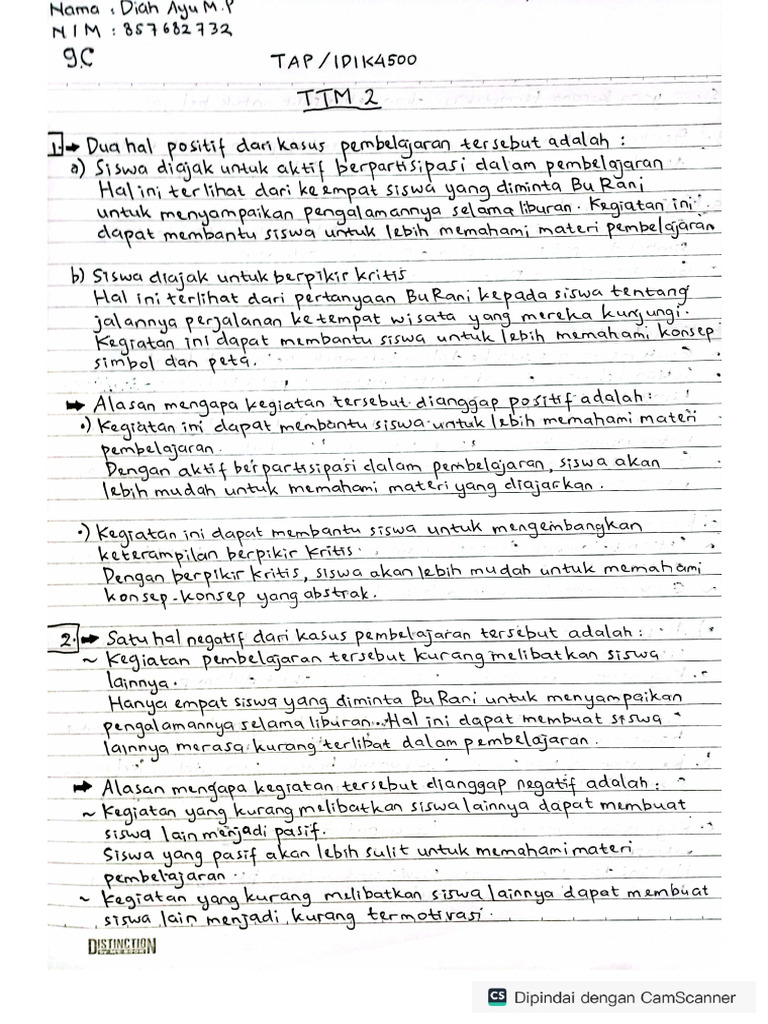 Nama : Diah Ayu M.P
NIM : 857682732
9C
TAP/IDIK4500
TTM 2
1. → Dua hal positif dari kasus pembelajaran tersebut adalah :
a) Siswa diajak untuk aktif berpartisipasi dalam pembelajaran
Hal ini terlihat dari keempat siswa yang diminta Bu Rani
untuk menyampaikan pengalamannya selama liburan. Kegiatan ini
dapat membantu siswa untuk lebih memahami materi pembelajaran
b) Siswa diajak untuk berpikir kritis
Hal ini terlihat dari pertanyaan Bu Rani kepada siswa tentang
jalannya perjalanan ke tempat wisata yang mereka kunjungi.
Kegiatan ini dapat membantu siswa untuk lebih memahami konsep
simbol dan peta.
→ Alasan mengapa kegiatan tersebut dianggap positif adalah :
•) Kegiatan ini dapat membantu siswa untuk lebih memahami materi
pembelajaran.
Dengan aktif berpartisipasi dalam pembelajaran, siswa akan
lebih mudah untuk memahami materi yang diajarkan.
•) Kegiatan ini dapat membantu siswa untuk mengembangkan
keterampilan berpikir kritis.
Dengan berpikir kritis, siswa akan lebih mudah untuk memahami
konsep-konsep yang abstrak.
2. → Satu hal negatif dari kasus pembelajaran tersebut adalah :
~ Kegiatan pembelajaran tersebut kurang melibatkan siswa
lainnya.
Hanya empat siswa yang diminta Bu Rani untuk menyampaikan
pengalamannya selama liburan. Hal ini dapat membuat siswa
lainnya merasa kurang terlibat dalam pembelajaran.
→ Alasan mengapa kegiatan tersebut dianggap negatif adalah :
~ Kegiatan yang kurang melibatkan siswa lainnya dapat membuat
siswa lain menjadi pasif.
Siswa yang pasif akan lebih sulit untuk memahami materi
pembelajaran.
~ Kegiatan yang kurang melibatkan siswa lainnya dapat membuat
siswa lain menjadi kurang termotivasi.
DISTINCTION
CS Dipindai dengan CamScanner